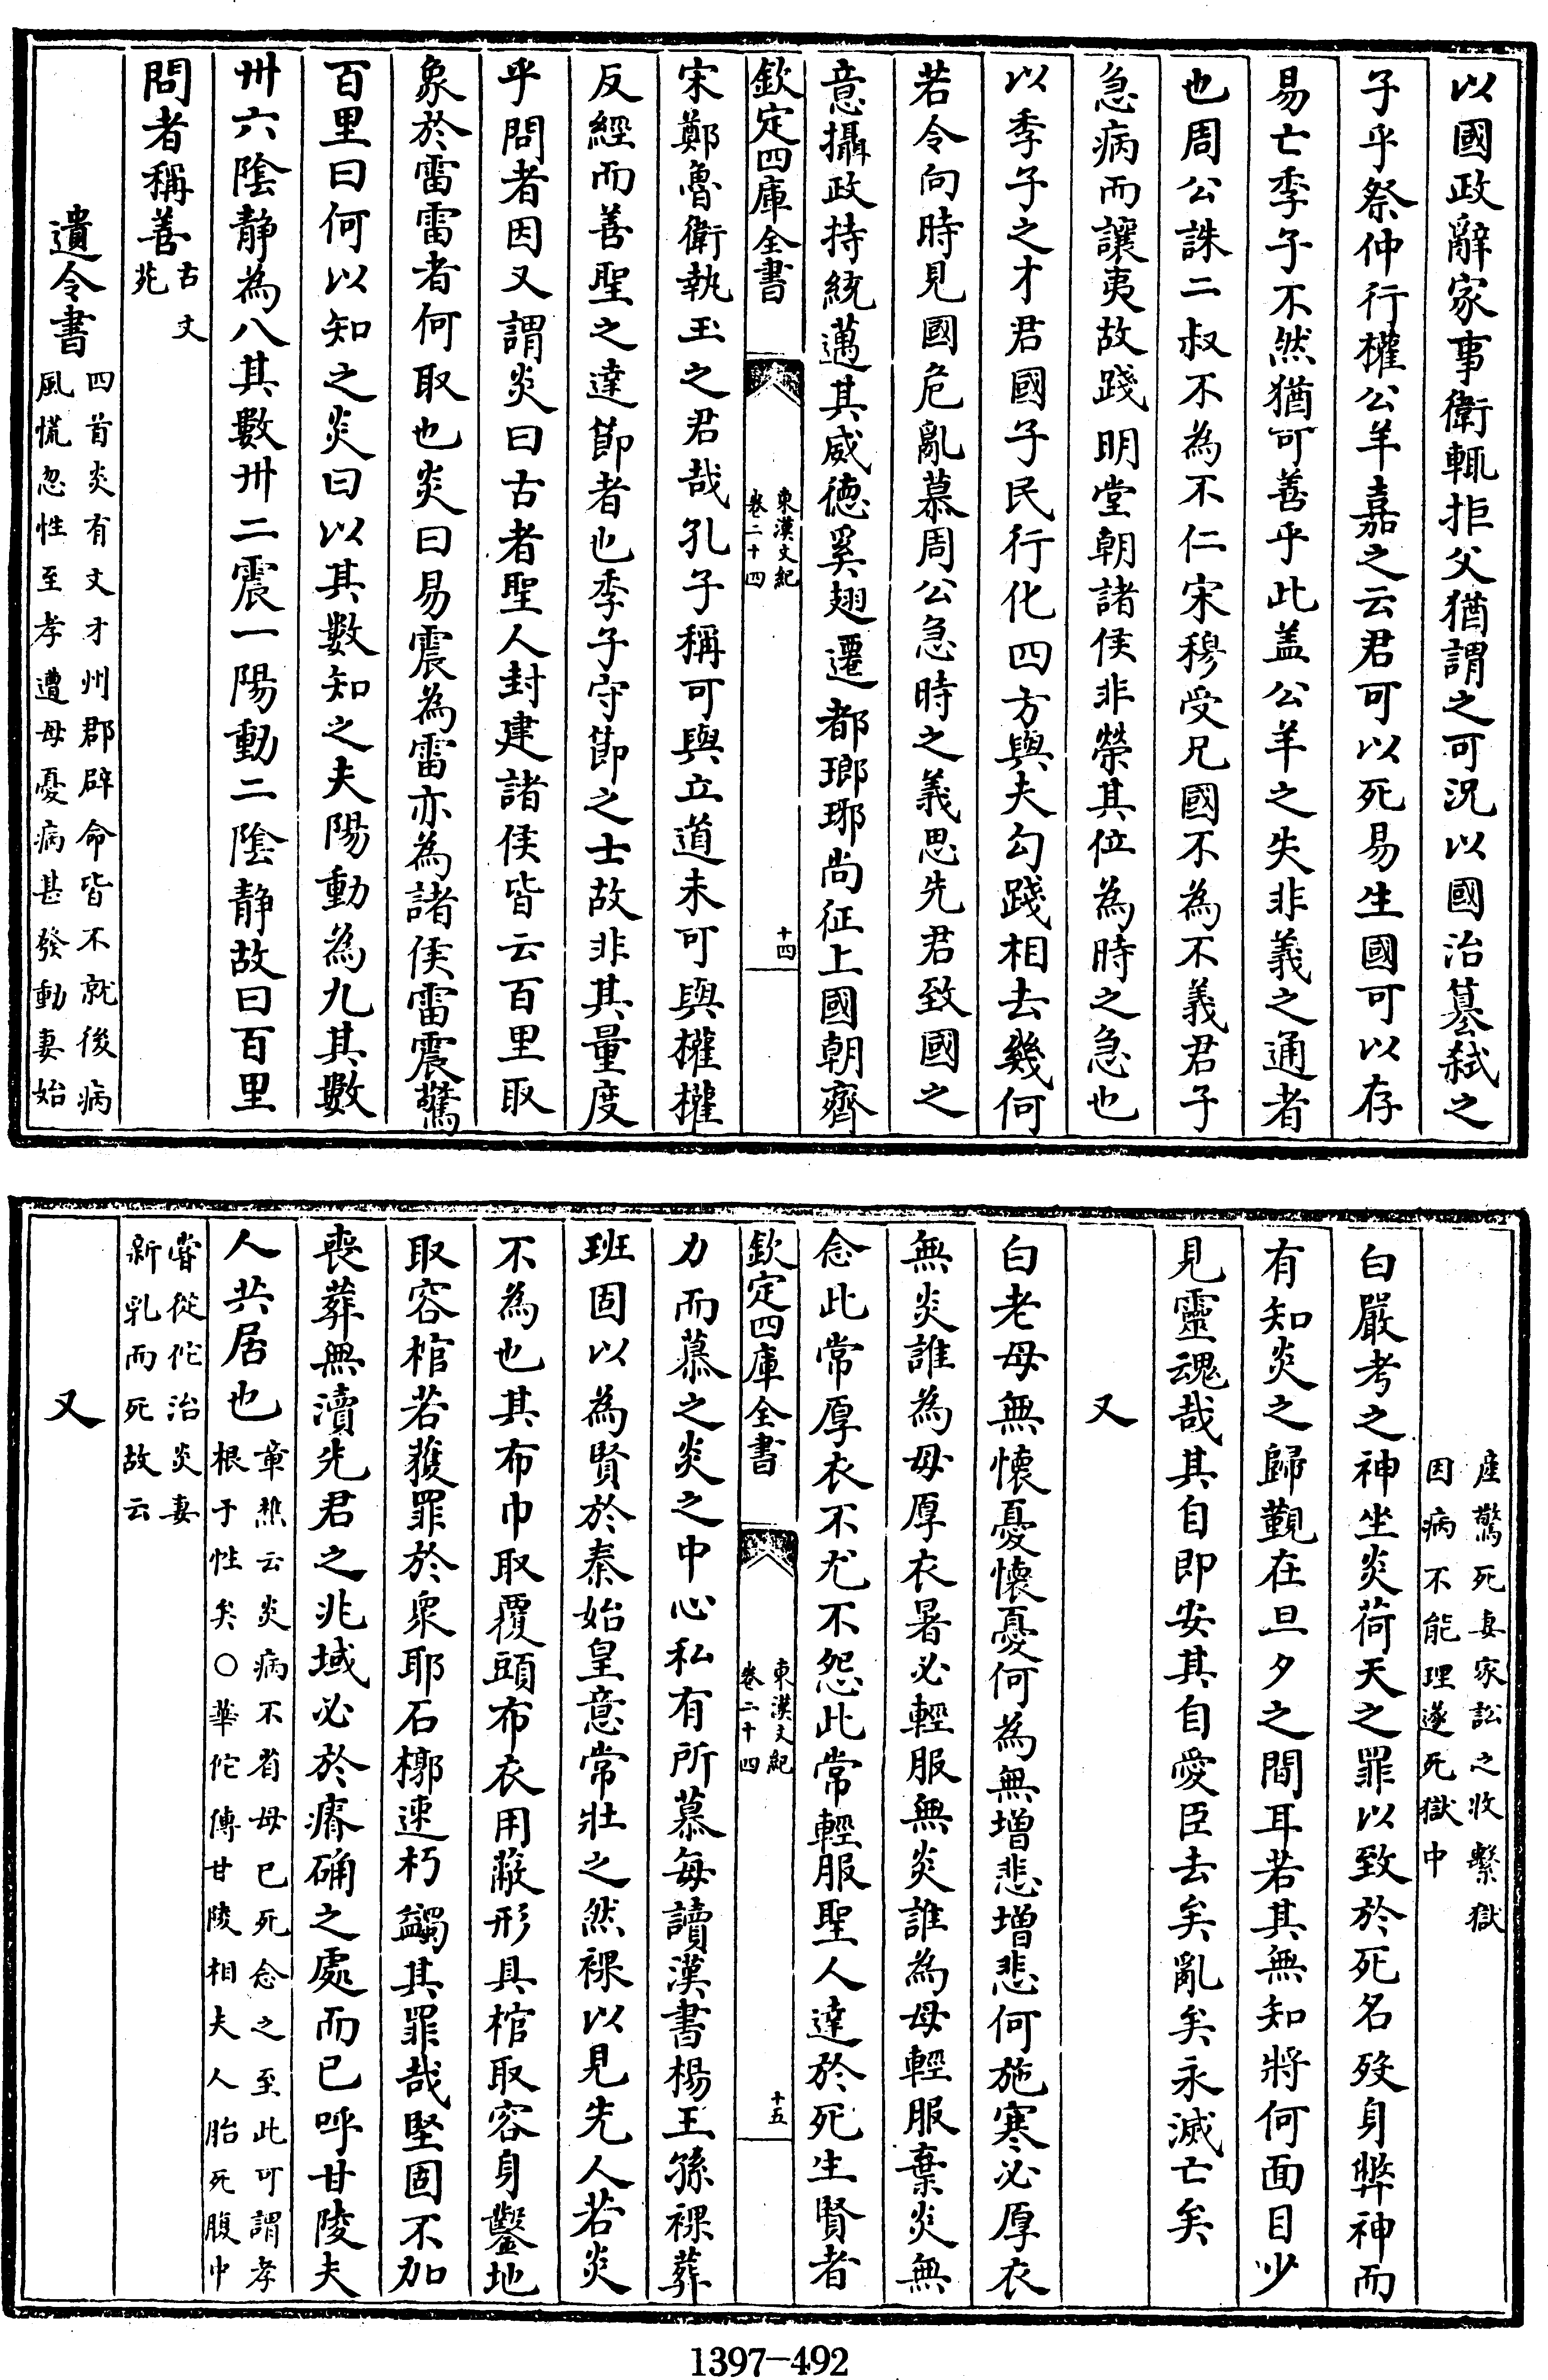 以國政辭家事衛輒拒父猶謂之可况以國治篡弑之
子乎祭仲行權公羊嘉之云君可以死易生國可以存
易亡季子不然猶可善乎此盖公羊之失非義之通者
也周公誅二叔不為不仁宋穆受兄國不為不義君子
急病而讓夷故踐明堂朝諸侯非榮其位為時之急也
以季子之才君國子民行化四方與夫勾踐相去幾何
若令向時見國危亂慕周公急時之義思先君致國之
意攝政持統邁其威徳奚翅遷都瑯琊尚征上國朝齊
欽定四庫全書
東漢文紀
卷二十四
十四
宋鄭魯衛執玉之君哉孔子稱可與立道未可與權權
反經而善聖之達節者也季子守節之士故非其量度
乎問者因又謂炎曰古者聖人封建諸侯皆云百里取
象於雷雷者何取也炎曰易震為雷亦為諸侯雷震驚
百里曰何以知之炎曰以其數知之夫陽動為九其數
卅六陰静為八其數卅二震一陽動二陰静故曰百里
問者稱善
古文
苑
遺令書
四首炎有文才州郡辟命皆不就後病
風慌忽性至孝遭母憂病甚發動妻始
産驚死妻家訟之收繫獄
因病不能理遂死獄中
白嚴考之神坐炎荷天之罪以致於死名歿身弊神而
有知炎之歸覲在旦夕之間耳若其無知將何面目少
見靈魂哉其自即安其自愛臣去矣亂矣永滅亡矣
又
白老母無懷憂懷憂何為無增悲增悲何施寒必厚衣
無炎誰為母厚衣暑必輕服無炎誰為母輕服棄炎無
念此常厚衣不尤不怨此常輕服聖人達於死生賢者
欽定四庫全書
東漢文紀
卷二十四
十五
力而慕之炎之中心私有所慕毎讀漢書楊王孫裸葬
班固以為賢於秦始皇意常壯之然裸以見先人若炎
不為也其布巾取覆頭布衣用蔽形具棺取容身鑿地
取容棺若獲罪於衆耶石槨速朽蠲其罪哉堅固不加
喪葬無瀆先君之兆域必於瘠确之處而已呼甘陵夫
人共居也
章樵云炎病不省母已死念之至此可謂孝
根于性矣○華佗傳甘陵相夫人胎死腹中
嘗從佗治炎妻
新乳而死故云
又
1397-492